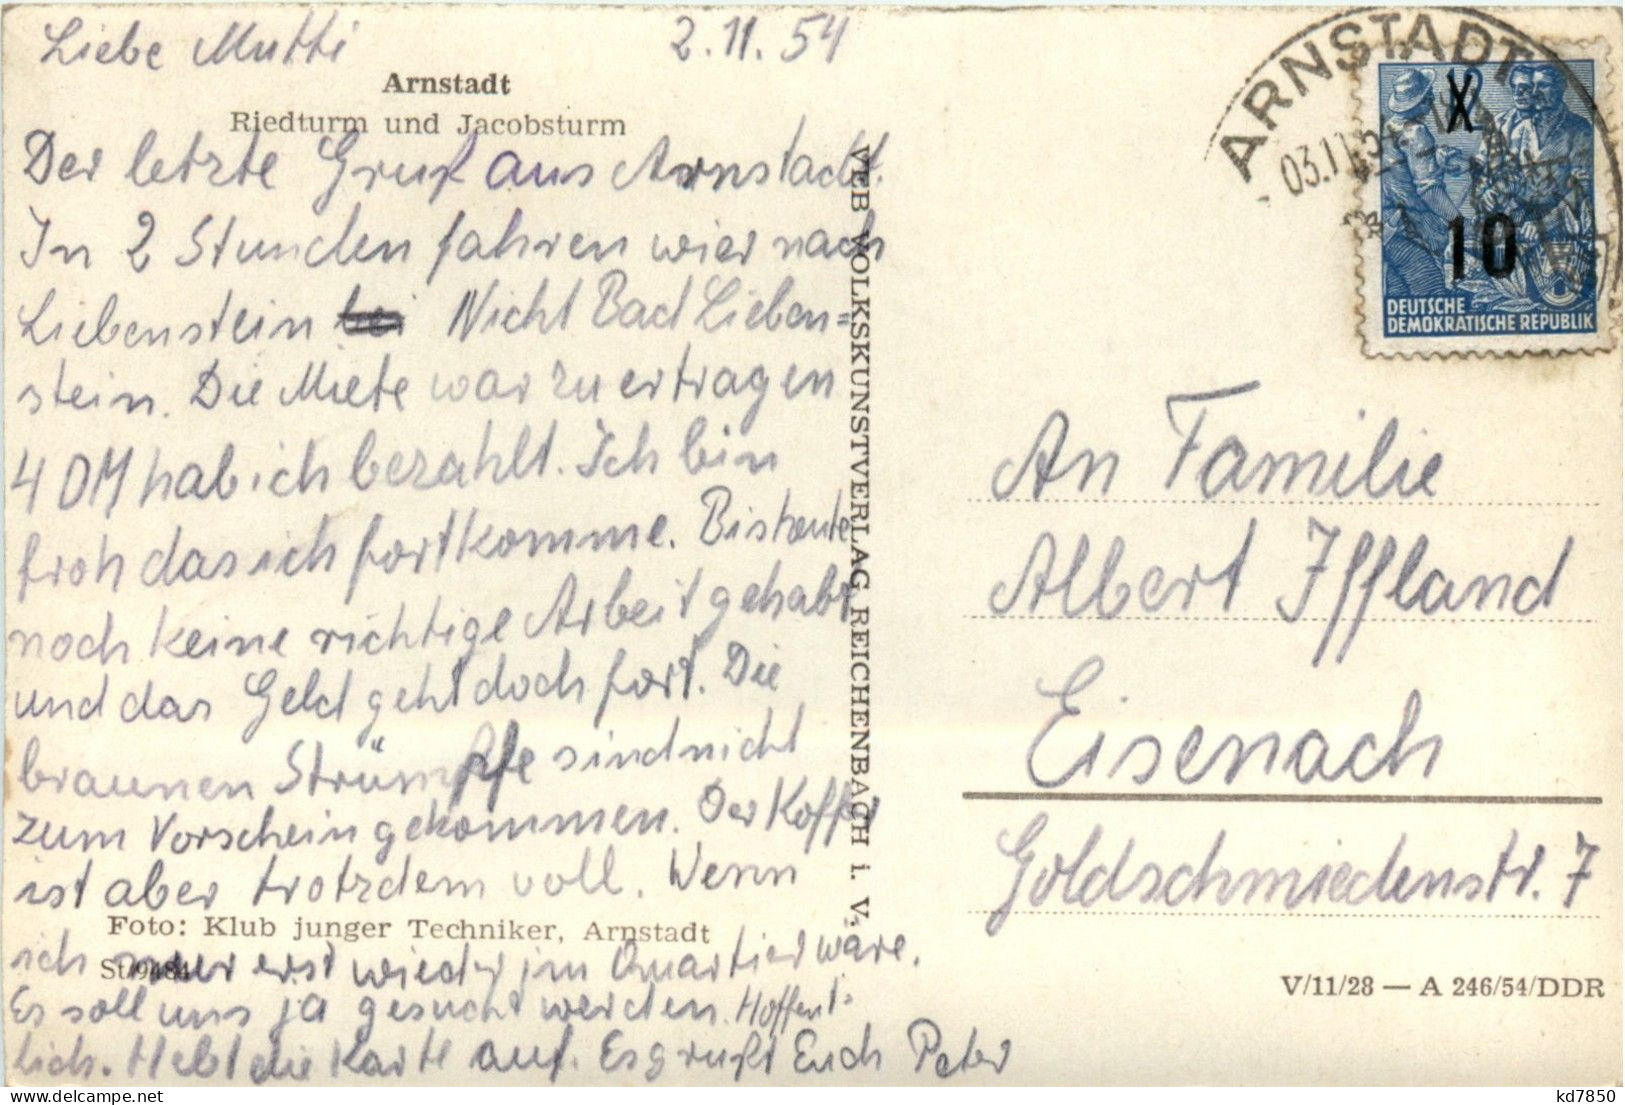 Liebe Mutti 2.11.54
Arnstadt
Riedturm und Jacobsturm
Der letzte Gruß aus Arnstadt.
In 2 Stunden fahren wier nach
Liebenstein bei Nicht Bad Lieben=
stein. Die Miete war zu ertragen
4 DM hab ich bezahlt. Ich bin
froh das ich fortkomme. Bis heute
noch keine richtige Arbeit gehabt
und das Geld geht doch fort. Die
braunen Strümpfe sind nicht
zum Vorschein gekommen. Der Koffer
ist aber trotzdem voll. Wenn
Foto: Klub junger Techniker, Arnstadt
ich nur erst wieder im Quartier wäre.
Es soll uns ja gesucht werden. Hoffent-
lich. Hebt die Karte auf. Es grüßt Euch Peter
VEB VOLKSKUNSTVERLAG REICHENBACH i. V.
ARNSTADT
03.11.54
10
DEUTSCHE
DEMOKRATISCHE REPUBLIK
An Familie
Albert Iffland
Eisenach
Goldschmiedenstr. 7
V/11/28 — A 246/54/DDR
kd7850